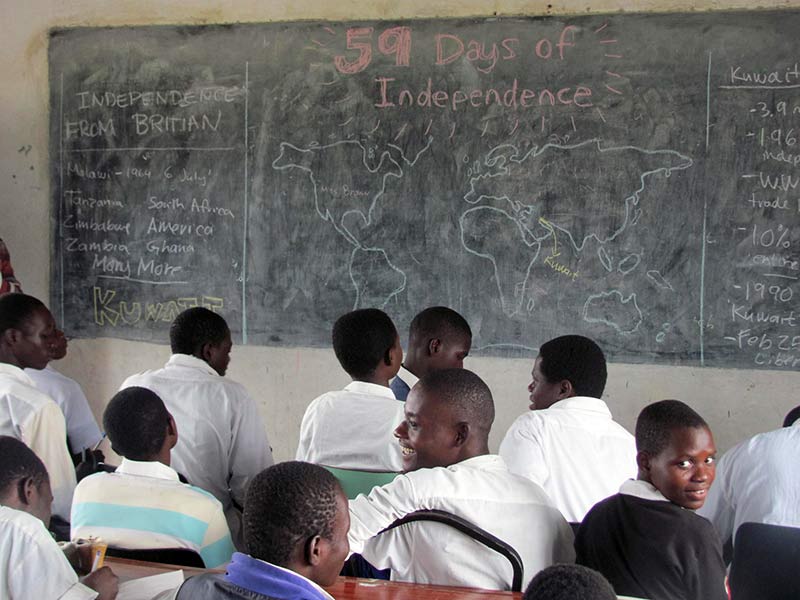 59 Days of
Independence
INDEPENDENCE
FROM BRITIAN
Malawi - 1964 6 July
Tanzania South Africa
Zimbabwe America
Zambia Ghana
Many More
KUWAIT
Kuwait
Kuwait
- 3.9
- 196
indep
- W.W
trade
- 10%
entire
- 1990
Kuwait
- Feb 25